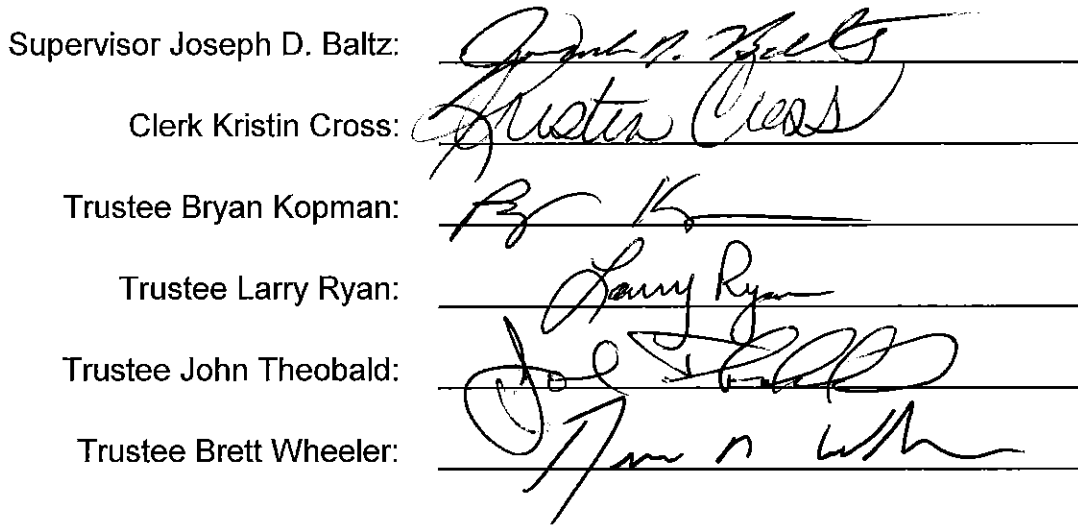 Supervisor Joseph D. Baltz: Joseph D. Baltz
Clerk Kristin Cross: Kristin Cross
Trustee Bryan Kopman:
Trustee Larry Ryan: Larry Ryan
Trustee John Theobald:
Trustee Brett Wheeler: